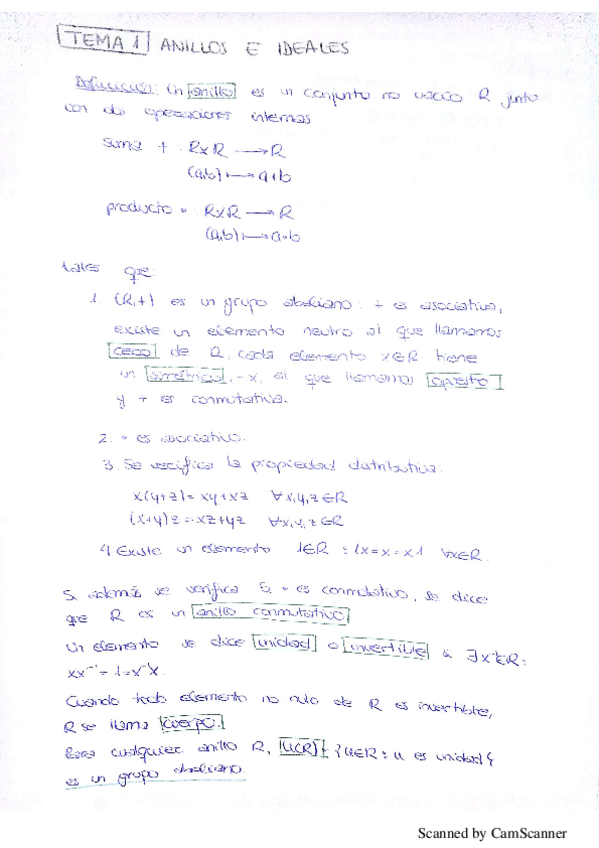 TEMA 1 ANILLOS E IDEALES
Definición: Un anillo es un conjunto no vacío R junto
con dos operaciones internas
suma + : RxR → R
(a,b) ↦ a+b
producto · RxR → R
(a,b) ↦ a·b
tales que:
1. (R,+) es un grupo abeliano: + es asociativa,
existe un elemento neutro al que llamamos
cero de R, cada elemento x∈R tiene
un simétrico, -x, al que llamamos opuesto
y + es conmutativa.
2. · es asociativo.
3. Se verifica la propiedad distributiva:
x(y+z)=xy+xz ∀x,y,z∈R
(x+y)z=xz+yz ∀x,y,z∈R
4. Existe un elemento 1∈R : 1x=x=x1 ∀x∈R.
Si además se verifica 5. · es conmutativo, se dice
que R es un anillo conmutativo.
Un elemento se dice unidad o invertible si ∃x⁻¹∈R:
xx⁻¹=1=x⁻¹x.
Cuando todo elemento no nulo de R es invertible,
R se llama cuerpo.
Para cualquier anillo R, U(R)={u∈R: u es unidad}
es un grupo abeliano.
Scanned by CamScanner